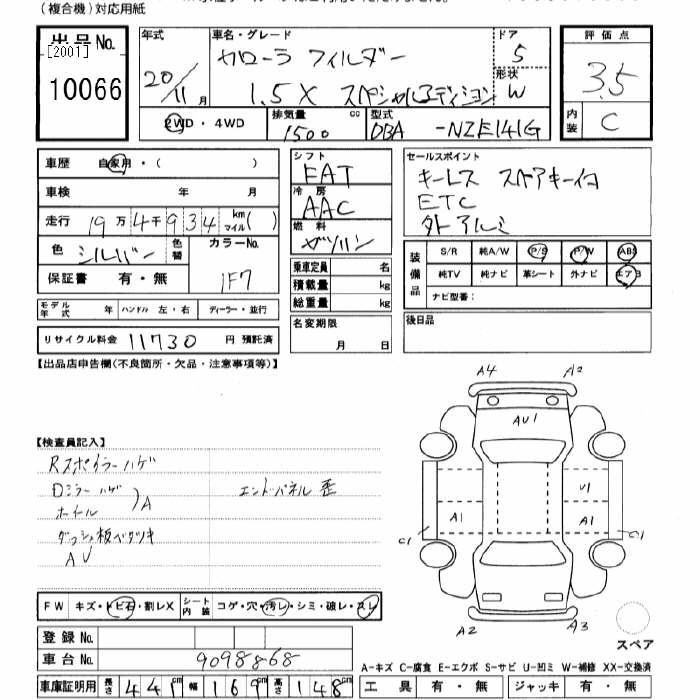 （複合機）対応用紙
出品No.
[2001]
10066
年式
20/11月
車名・グレード
カローラ フィルダー
1.5X スペシャルエディション
ドア
5
形状
W
2WD・4WD
排気量
1500 cc
型式
DBA -NZE141G
評価点
3.5
内装
C
車歴 自家用・( )
車検 年 月
走行 19万4千934 km マイル( )
色 シルバー 色替 カラーNo. 1F7
保証書 有・無
モデル年式 年 ハンドル 左・右 ディーラー・並行
リサイクル料金 11730 円 預託済
シフト
FAT
冷房
AAC
燃料
ガソリン
乗車定員 名
積載量 kg
総重量 kg
名変期限
月 日
セールスポイント
キーレス スペアキー1コ
ETC
外アルミ
装備品
S/R 純A/W P/S P/W ABS
純TV 純ナビ 革シート 外ナビ エアB
ナビ型番：
後日品
【出品店申告欄(不良箇所・欠品・注意事項等)】
【検査員記入】
Rスポイラーハゲ
Dミラーハゲ
ホイール
)A
エンドパネル歪
ダッシュ板ベタツキ
AU
A4 A2
AU1
U1
A1 A1
C1 C1
A2 A3
スペア
FW キズ・トビ石・割レX シート内装 コゲ・穴・汚レ・シミ・破レ・スレ
登録No.
車台No. 9098868
車庫証明用 長さ 441cm 幅 169cm 高さ 148cm
A-キズ C-腐食 E-エクボ S-サビ U-凹ミ W-補修 XX-交換済
工具 有・無 ジャッキ 有・無